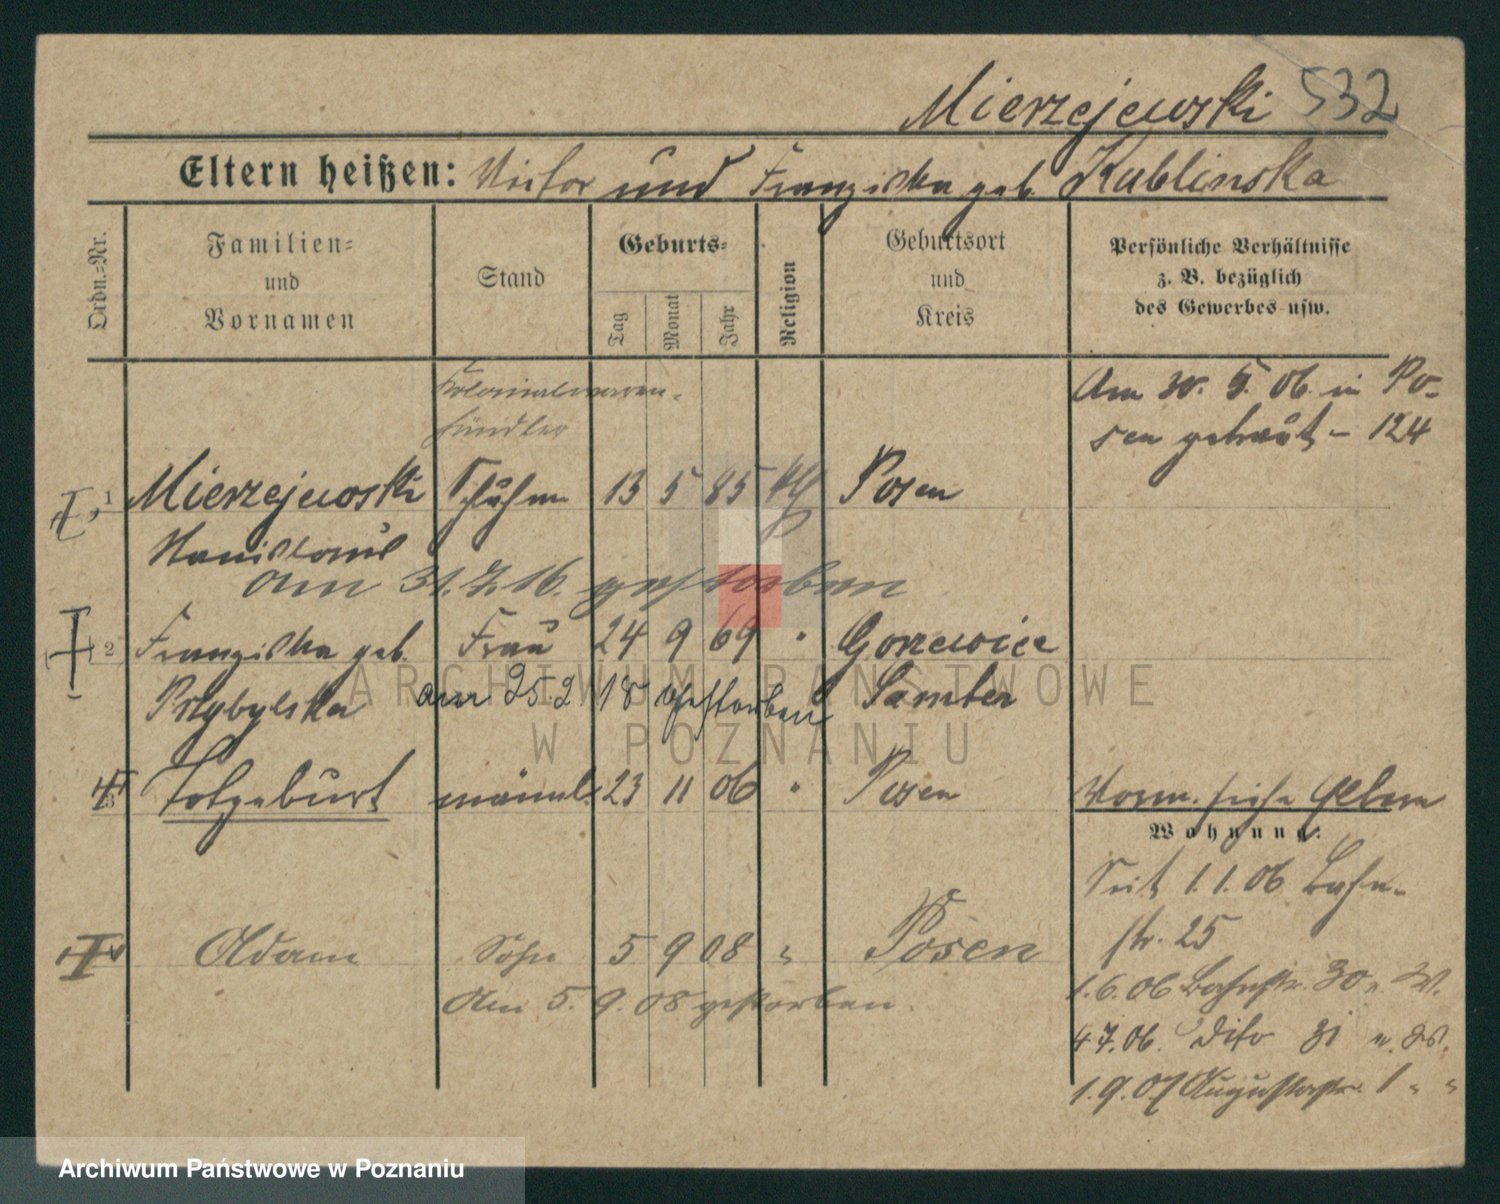 Mierzejewski 532
Eltern heißen: Victor und Franziska geb. Kublinska
Ordn.-Nr.
Familien-
und
Vornamen
Stand
Geburts-
Tag
Monat
Jahr
Religion
Geburtsort
und
Kreis
Persönliche Verhältnisse
z. B. bezüglich
des Gewerbes usw.
Kolonialwaren-
händler
Am 30. 5. 06. in Po-
sen getraut – 124
1 Mierzejewski 13 5 85 kth Posen
Stanislaus
am 31. 7. 16. gestorben
2 Franziska geb. Frau 24 9 69 " Gorzewice
Przybylska am 25. 2 18 gestorben Samter
3 Totgeburt männl. 23 11 06 " Posen
Vorm. siehe Eltern
Wohnung:
Seit 1. 1. 06 Bahn-
str. 25
Adam Sohn 5 9 08 " Posen
Am 5. 9. 08 gestorben.
1. 6. 06 Bahnstr. 30 n. W.
4 7. 06. dito 31 n. W.
1. 9. 07 Augustastr. 1 " "
ARCHIWUM PAŃSTWOWE
W POZNANIU
Archiwum Państwowe w Poznaniu